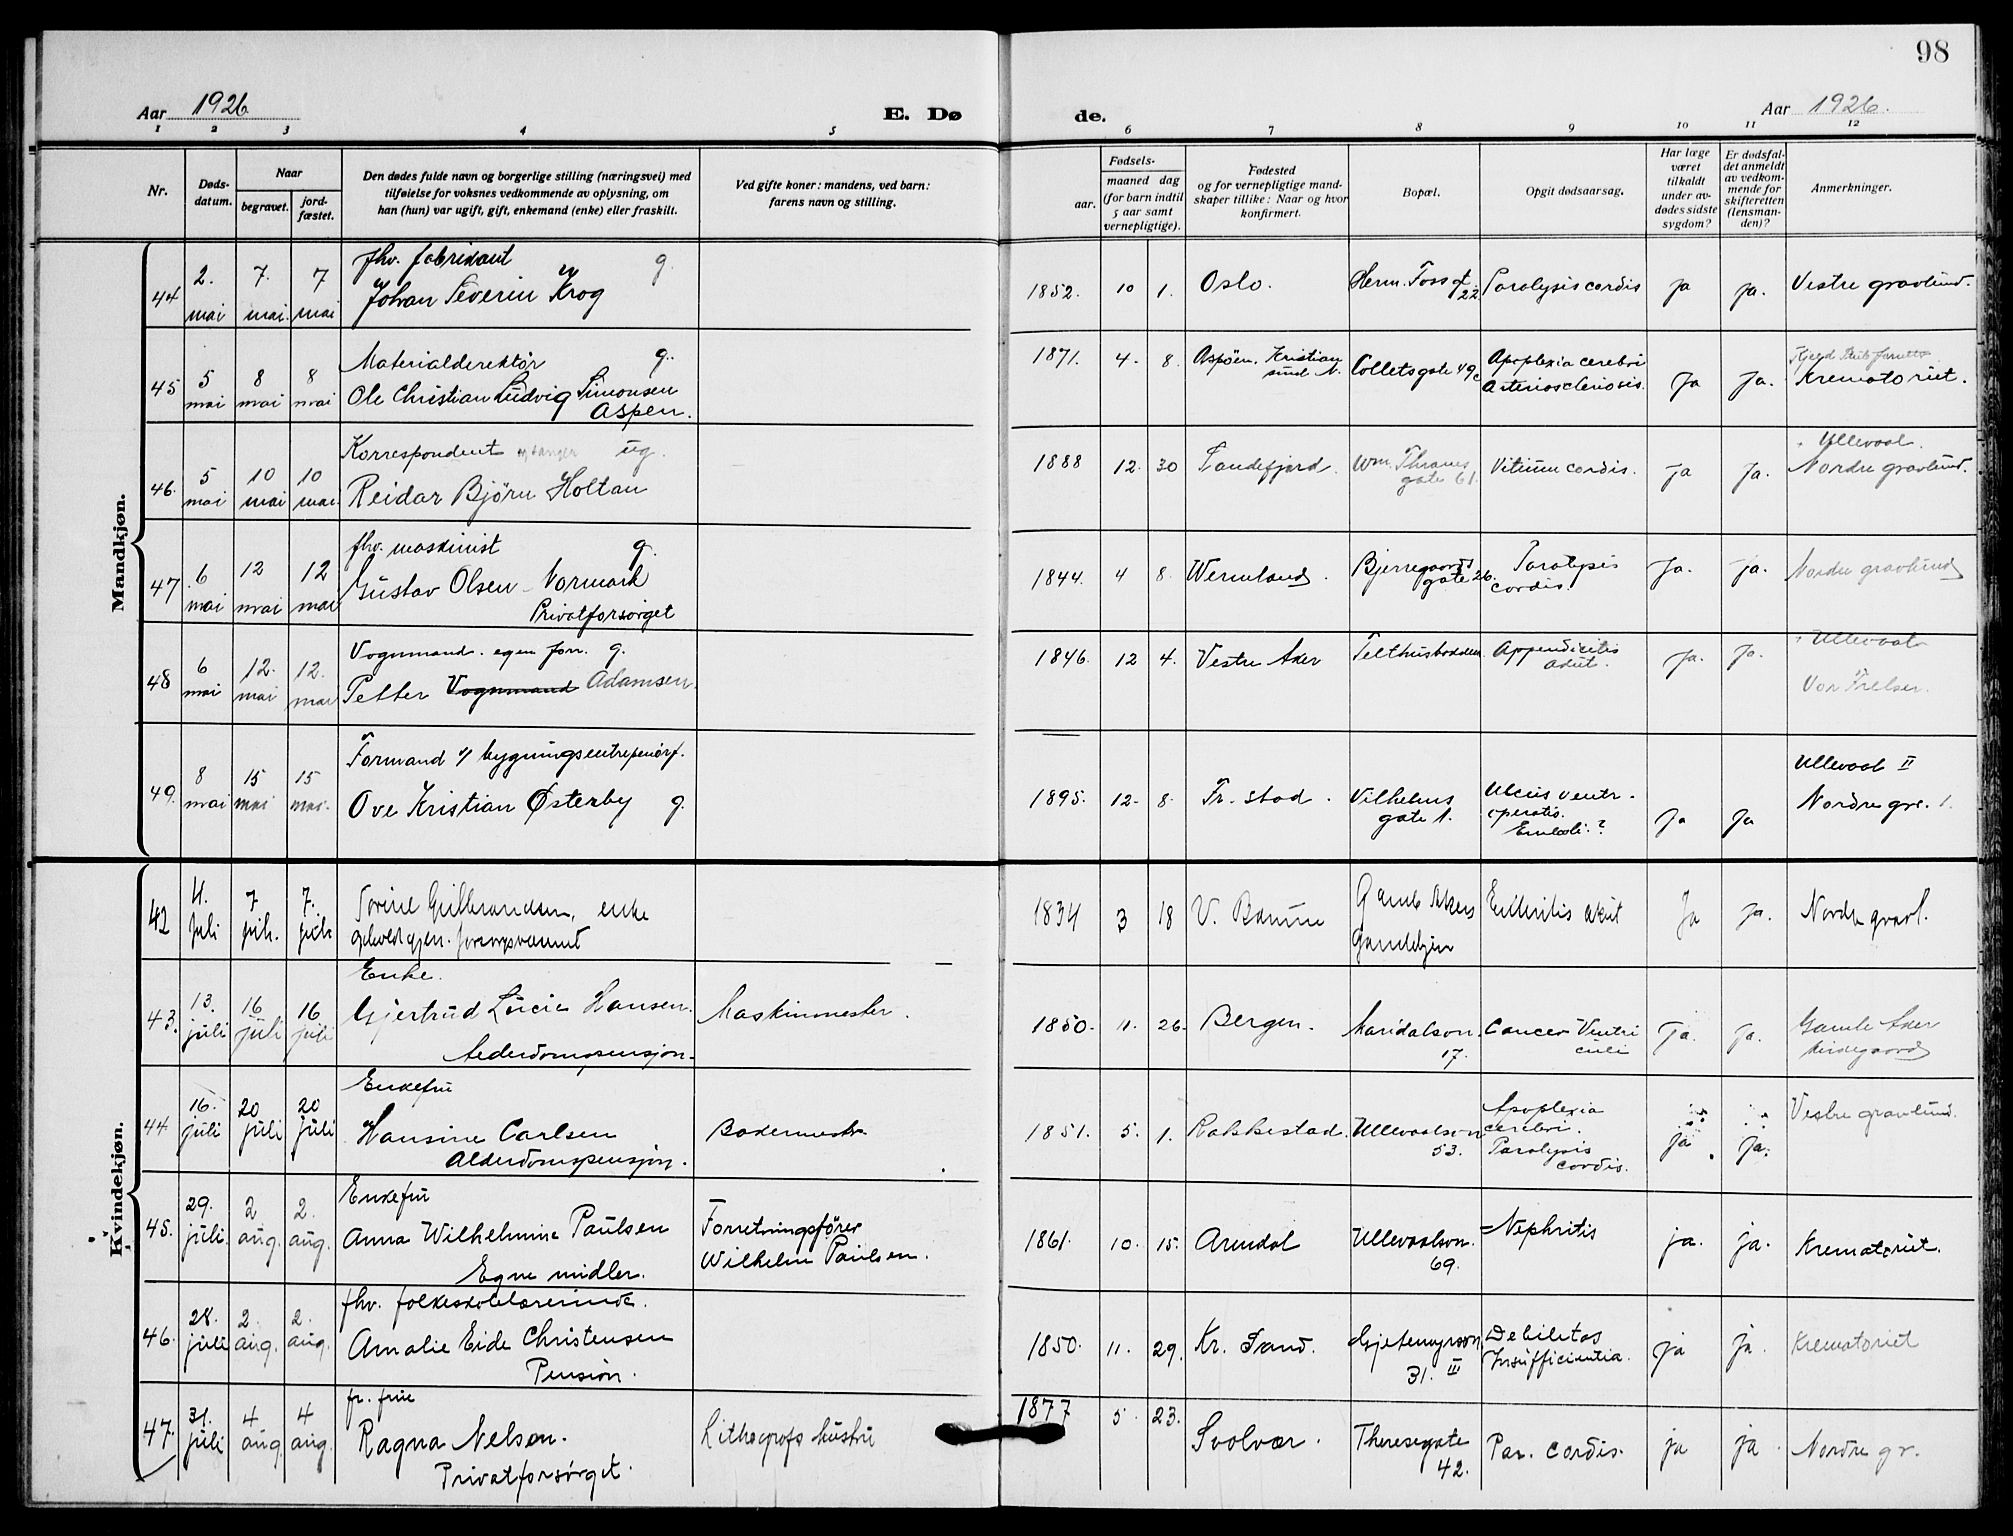 98
Aar 1926
E. Dø
de.
Aar 1926.
1 2 3 4 5 6 7 8 9 10 11 12
Nr.
Døds-
datum.
Naar
begravet.
jord-
fæstet.
Den dødes fulde navn og borgerlige stilling (næringsvei) med
tilføielse for voksnes vedkommende av oplysning, om
han (hun) var ugift, gift, enkemand (enke) eller fraskilt.
Ved gifte koner: mandens, ved barn:
farens navn og stilling.
Fødsels-
aar.
maaned dag
(for barn indtil
5 aar samt
vernepligtige).
Fødested
og for vernepligtige mand-
skaper tillike: Naar og hvor
konfirmert.
Bopæl.
Opgit dødsaarsag.
Har læge
været
tilkaldt
under av-
dødes sidste
sygdom?
Er dødsfal-
det anmeldt
av vedkom-
mende for
skifteretten
(lensman-
den)?
Anmerkninger.
Mandkjøn.
44
2. mai
7. mai.
7 mai
fhv. fabrikant g.
Johan Severin Krog
1852. 10 1.
Oslo.
Herm. Foss gt 22.
Paralysis cordis
ja
ja.
Vestre gravlund.
45
5 mai
8 mai
8 mai
Materialdirektør g.
Ole Christian Ludvig Simonsen
Aspen.
1871. 4. 8.
Aspöen. Kristian
sund N.
Colletsgate 49c
Apoplexia cerebri
Arteriosclerosis.
Ja
Ja.
Krematoriet.
46.
5 mai
10 mai
10 mai
Korrespondent og sanger ug.
Reidar Björn Holtan
1888 12. 30
Sandefjord.
Wm. Thranes
gate 61.
Vitium cordis.
Ja
Ja.
Ullevaal.
Nordre gravlund.
47
6 mai
12 mai
12 mai
fhv. maskinist g.
Gustav Olsen Normark
Privatforsörget
1844. 4 8.
Wermland.
Bjerregaards
gate 26.
Paralysis
cordis.
Ja.
ja.
Nordre gravlund
48
6 mai
12. mai
12. mai
Vognmand. egen forr. g.
Petter Vognmand Adamsen.
1846. 12 4.
Vestre Aker
Telthusbakken
Appendicitis
acut.
Ja.
Ja.
Ullevaal
Vor Frelser.
49.
8 mai
15 mai
15 mai.
Formand v/ bygningsentreprenörf.
Ove Kristian Østerby g.
1895. 12. 8.
Fr. stad.
Vilhelms
gate 1.
Ulcus ventr.
operatis.
Emboli.?
Ja
Ja
Ullevaal II
Nordre grl.
Kvindekjøn.
42
4. juli
7 juli.
7. juli
Sorine Gulbrandsen, enke
1834 3 18
V. Bærum
Gamle Akers
Gamlehjem
Enteritis akut
Ja
Ja.
Nordre gravl.
43.
13. juli
16 juli
16 juli
Enke.
Gjertrud Lucie Hansen.
Alderdomspensjon.
Maskinmester.
1850. 11. 26.
Bergen.
Maridalsvn.
17.
Cancer Ventri
culi
Ja.
Ja.
Gamle Aker
kirkegaard
44
16. juli
20 juli
20 juli
Enkefru
Hansine Carlsen
Alderdomspensjon.
Bademester
1851. 5. 1.
Rakkestad.
Ullevaalsvn
53.
Apoplexia
cerebri.
Paralysis
cordis.
ja
ja.
Vestre gravlund.
45.
29. juli.
2 aug.
2. aug.
Enkefru
Anna Wilhelmine Paulsen
Egne midler.
Forretningsfører
Wilhelm Paulsen.
1861. 10. 15.
Arendal
Ullevaalsvn.
69.
Nephritis
ja.
ja.
Krematoriet.
46.
28. juli
2. aug.
2. aug.
fhv. folkeskolelærerinde.
Amalie Eide Christensen
Pension.
1850. 11. 29.
Kr. Sand.
Gjetemyrsvn
31. III
Debilitas
Insufficientia.
ja
ja.
Krematoriet
47.
31. juli
4 aug.
4 aug.
fr. frue
Ragna Nelson.
Privatforsörget.
Lithografs hustru
1877 5. 23.
Svolvær.
Theresegate
42.
Par. cordis.
ja
ja.
Nordre gr.